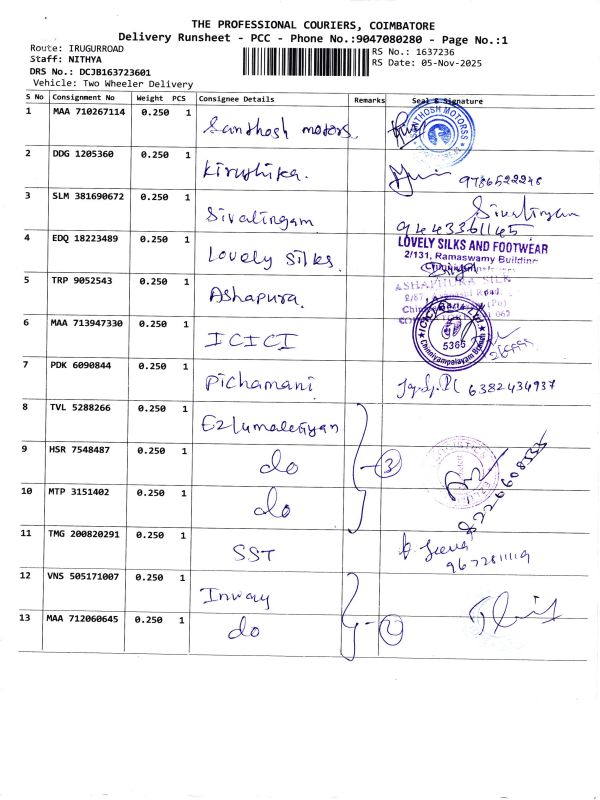 THE PROFESSIONAL COURIERS, COIMBATORE
Delivery Runsheet - PCC - Phone No.:9047080280 - Page No.:1
Route: IRUGURROAD
Staff: NITHYA
DRS No.: DCJB163723601
Vehicle: Two Wheeler Delivery
RS No.: 1637236
RS Date: 05-Nov-2025
S No Consignment No Weight PCS Consignee Details Remarks Seal & Signature
1 MAA 710267114 0.250 1 Santhosh motors. SANTHOSH MOTORSS
2 DDG 1205360 0.250 1 Kirushika. 9786522248
3 SLM 381690672 0.250 1 Sivalingam Sivalingam
9443361145
4 EDQ 18223489 0.250 1 Lovely silks. LOVELY SILKS AND FOOTWEAR
2/131, Ramaswamy Building
5 TRP 9052543 0.250 1 Ashapura. ASHAPURA SILK
6 MAA 713947330 0.250 1 ICICI ICICI Bank Ltd
5365
Chinniyampalayam Branch
7 PDK 6090844 0.250 1 Pichamani 6382434937
8 TVL 5288266 0.250 1 Ezlumalaiyan
9 HSR 7548487 0.250 1 do 3
10 MTP 3151402 0.250 1 do
11 TMG 200820291 0.250 1 SST
12 VNS 505171007 0.250 1 Inway
13 MAA 712060645 0.250 1 do 2